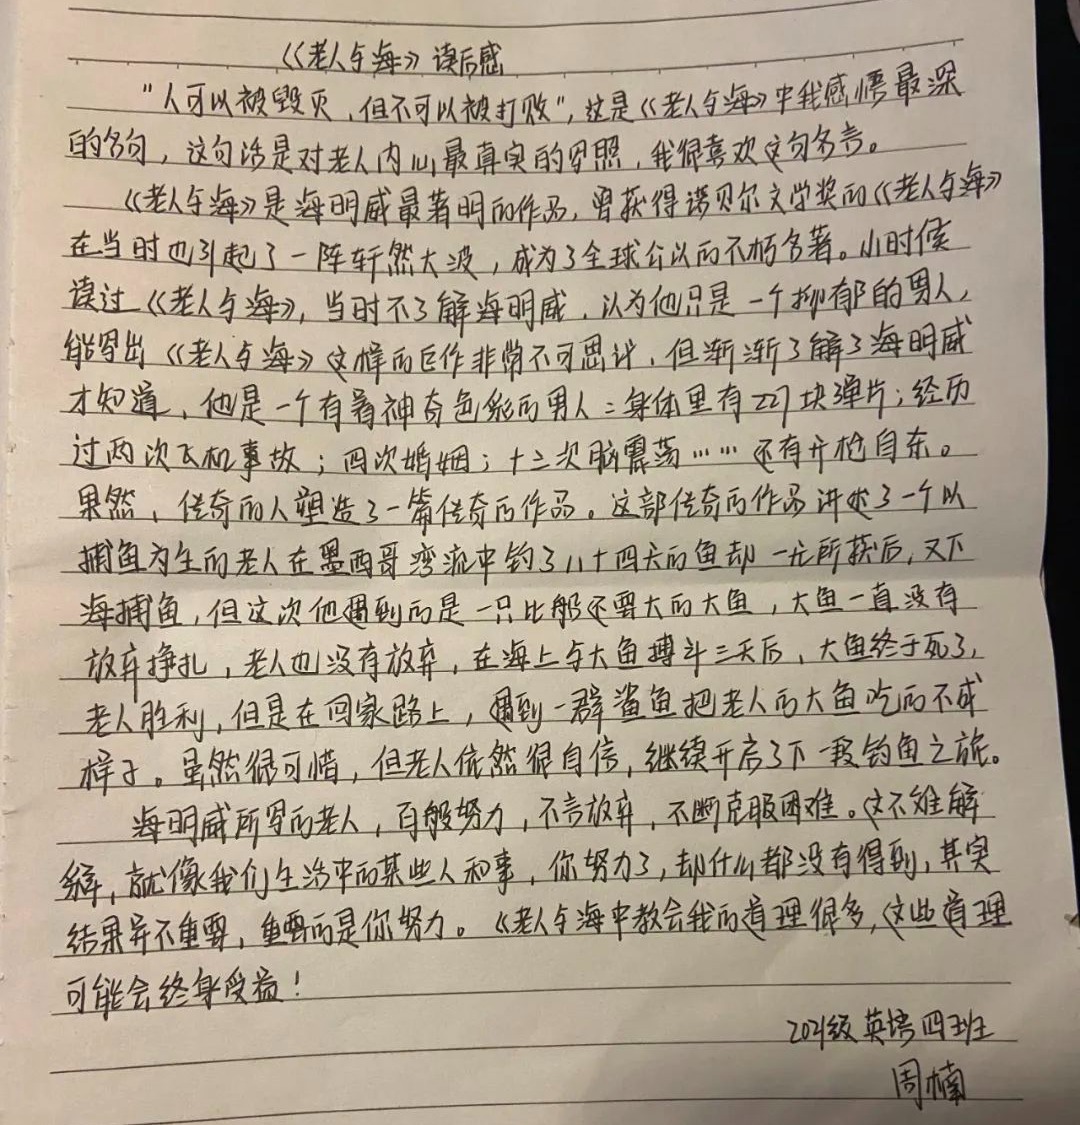 《老人与海》读后感
"人可以被毁灭,但不可以被打败",这是《老人与海》中我感悟最深
的名句,这句话是对老人内心最真实的写照,我很喜欢这句名言。
《老人与海》是海明威最著明的作品,曾获得诺贝尔文学奖的《老人与海》
在当时也引起了一阵轩然大波,成为了全球公认的不朽名著。小时候
读过《老人与海》,当时不了解海明威,认为他只是一个抑郁的男人,
能写出《老人与海》这样的巨作非常不可思计,但渐渐了解了海明威
才知道,他是一个有着神奇色彩的男人:身体里有227块弹片;经历
过两次飞机事故;四次婚姻;十二次脑震荡……还有开枪自杀。
果然,传奇的人塑造了一篇传奇的作品。这部传奇的作品讲述了一个以
捕鱼为生的老人在墨西哥湾流中钓了八十四天的鱼却一无所获后,又下
海捕鱼,但这次他遇到的是一只比船还要大的大鱼,大鱼一直没有
放弃挣扎,老人也没有放弃,在海上与大鱼搏斗三天后,大鱼终于死了,
老人胜利,但是在回家路上,遇到一群鲨鱼把老人的大鱼吃的不成
样子。虽然很可惜,但老人依然很自信,继续开启了下一段钓鱼之旅。
海明威所写的老人,百般努力,不言放弃,不断克服困难。这不难解
释,就像我们生活中的某些人和事,你努力了,却什么都没有得到,其实
结果并不重要,重要的是你努力。《老人与海中教会我的道理很多,这些道理
可能会终身受益!
2021级英培四班
周楠